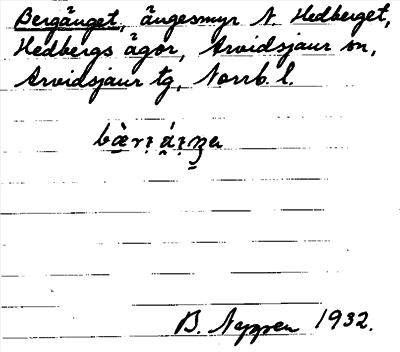 Bergänget, ängesmyr N. Hedberget,
Hedbergs ägor, Arvidsjaur sn,
Arvidsjaur tg, Norrb. l.
B. Neppen 1932.